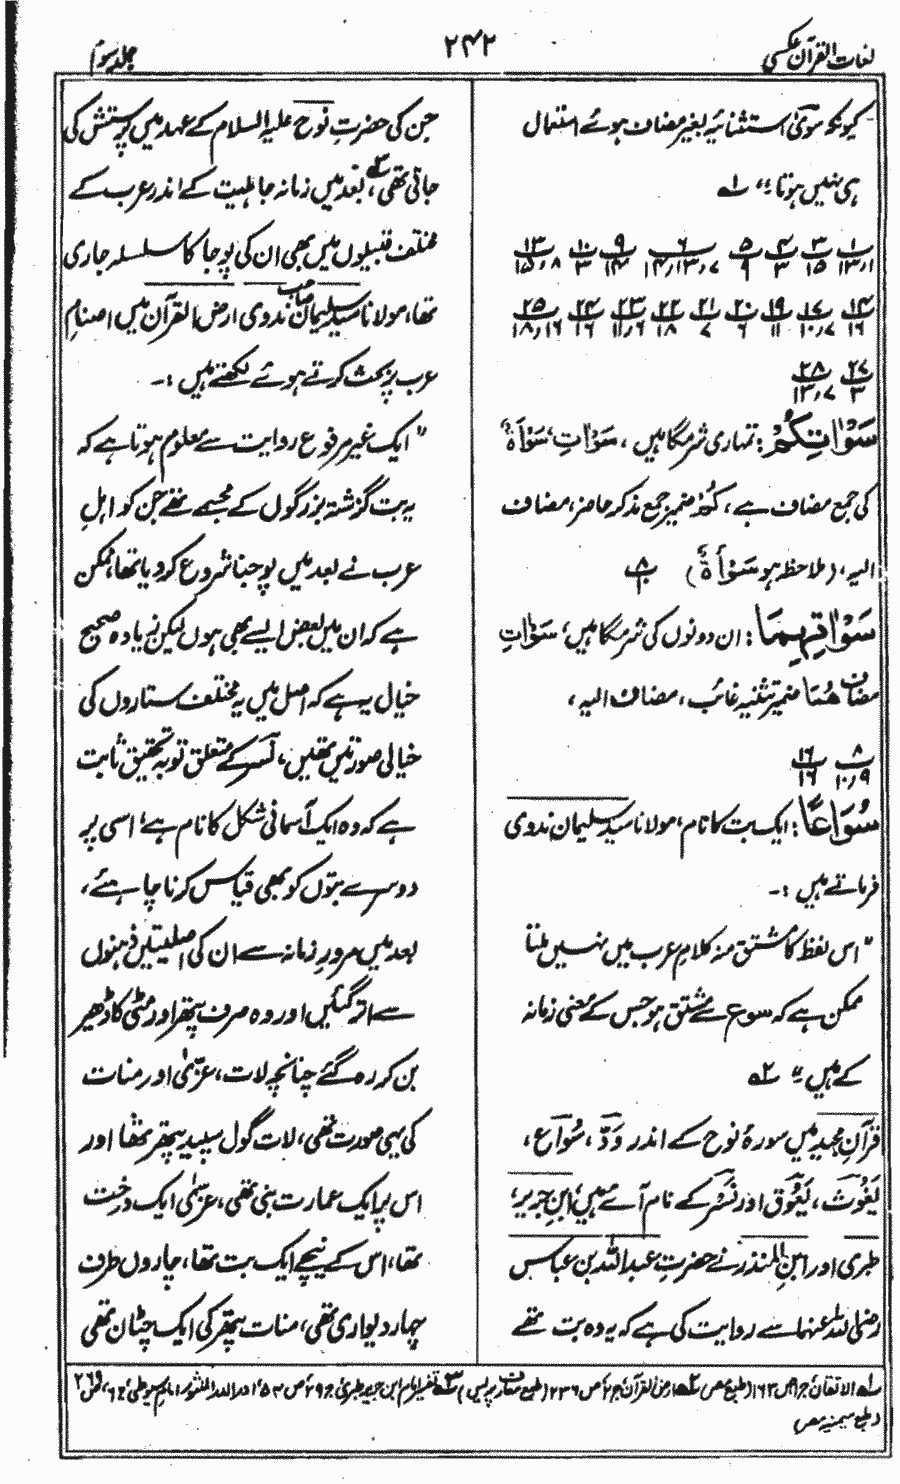 لغات القرآن عکسی
۲۴۲
جلد سوم
کیونکہ سویٰ استثنائیہ بغیر مضاف ہوئے استعمال
ہی نہیں ہوتا "؛ ۱ھ
۱ ۳ ۴ ۵ ۶ ۹ ۱۰ ۱۳
۱۳،۱ ۱۵ ۳ ۹ ۱۴،۱۳،۷ ۱۴ ۳ ۱۵،۸
۱۴ ۱۷ ۱۹ ۲۰ ۲۱ ۲۲ ۲۳ ۲۴ ۲۵
۱۶ ۱۰،۷ ۱۱ ۶ ۷ ۱۸ ۱۱،۶ ۱۶ ۱۸،۱۶
۲۷ ۲۸
۳ ۱۳،۷
سَوْاٰتِكُمْ: تمہاری شرمگاہیں ، سَوْاٰتِ، سَوْأَةٌ
کی جمع مضاف ہے، کُمْ ضمیر جمع مذکر حاضر، مضاف
الیہ، (ملاحظہ ہو سَوْأَةٌ) ۸
سَوْاٰتِهِمَا: ان دونوں کی شرمگاہیں، سَوْاٰتِ
مضاف هُمَا ضمیر تثنیہ غائب، مضاف الیہ،
۸ ۱۶
۱۰،۹ ۱۶
سُوَاعًا: ایک بت کا نام، مولانا سید سلیمان ندوی
فرماتے ہیں :-
" اس لفظ کا مشتق منہ کلام عرب میں نہیں ملتا
ممکن ہے کہ سوع سے مشتق ہو جس کے معنی زمانہ
کے ہیں " ۲ھ
قرآن مجید میں سورۂ نوح کے اندر وَدّ، سُوَاع،
یَغُوْث، یَعُوْق اور نَسْر کے نام آئے ہیں، ابن جریر،
طبری اور ابن المنذر نے حضرت عبداللہ بن عباس
رضی اللہ عنہما سے روایت کی ہے کہ یہ وہ بت تھے
جن کی حضرت نوح علیہ السلام کے عہد میں پرستش کی
جاتی تھی ۳ھ، بعد میں زمانہ جاہلیت کے اندر عرب کے
مختلف قبیلوں میں بھی ان کی پوجا کا سلسلہ جاری
تھا، مولانا سید سلیمان صاحب ندوی ارض القرآن میں اصنامِ
عرب پر بحث کرتے ہوئے لکھتے ہیں :-
" ایک غیر مرفوع روایت سے معلوم ہوتا ہے کہ
یہ بت گزشتہ بزرگوں کے مجسمے تھے جن کو اہلِ
عرب نے بعد میں پوجنا شروع کر دیا تھا، ممکن
ہے کہ ان میں بعض ایسے بھی ہوں لیکن زیادہ صحیح
خیال یہ ہے کہ اصل میں یہ مختلف ستاروں کی
خیالی صورتیں تھیں، نَسر کے متعلق تو یہ تحقیق ثابت
ہے کہ وہ ایک آسمانی شکل کا نام ہے، اسی پر
دوسرے بتوں کو بھی قیاس کرنا چاہئے،
بعد میں مرورِ زمانہ سے ان کی اصلیتیں ذہنوں
سے اتر گئیں اور وہ صرف پتھر اور مٹی کا ڈھیر
بن کر رہ گئے چنانچہ لات، عزّیٰ اور منات
کی یہی صورت تھی، لات گول سپید پتھر تھا اور
اس پر ایک عمارت بنی تھی، عزیٰ ایک درخت
تھا، اس کے نیچے ایک بت تھا، چاروں طرف
چہار دیواری تھی، منات پتھر کی ایک چٹان تھی
۱ھ الاتقان، ج۱ ص ۱۶۳ (طبع مصر) ۲ھ ارض القرآن، ج۲، ص ۲۳۶ (طبع معارف پریس) ۳ھ تفسیر امام ابن جریر طبری، ج۲۹، ص ۵۳، اور الدر المنثور، امام سیوطی، ج۶، ص ۲۶۹
(طبع میمنیہ مصر)